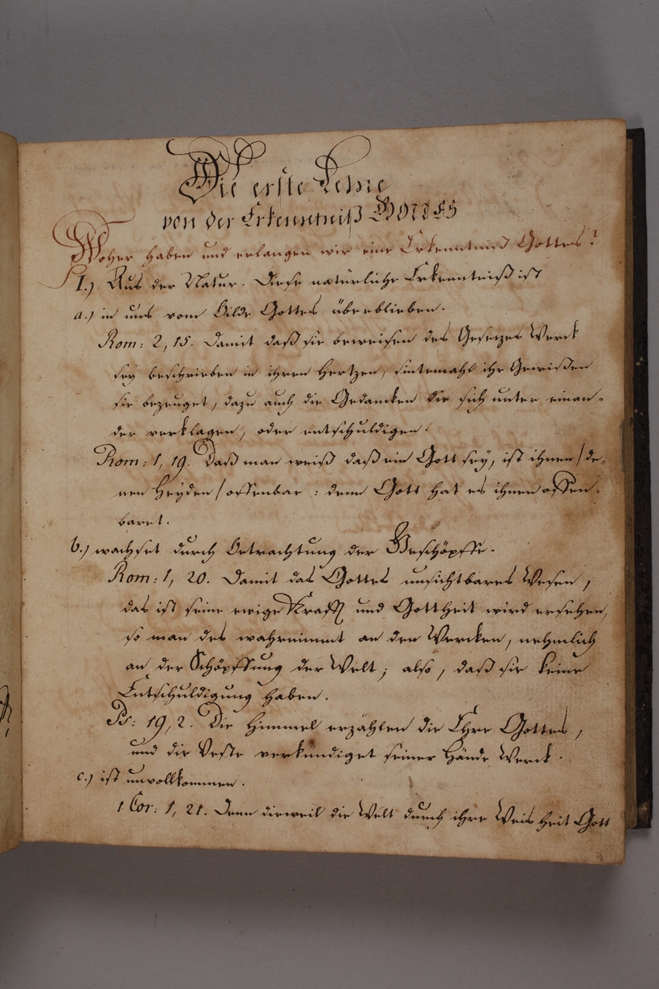 Die erste Lehre
von der Erkenntniß GOTTES
Woher haben und erlangen wir eine Erkenntniß Gottes?
I.) Aus der Natur. Diese natürliche Erkenntniß ist
a.) in uns vom Bilde Gottes überblieben.
Rom: 2, 15. Damit daß sie beweisen des Gesetzes Werck
sey beschrieben in ihren Hertzen, sintemahl ihr Gewißen
sie bezeuget, dazu auch die Gedancken die sich unter einan-
der verklagen, oder entschuldigen.
Rom: 1, 19. Daß man weiß daß ein Gott sey, ist ihnen /de-
nen Heyden/ offenbar: denn Gott hat es ihnen offen-
baret.
b.) wachset durch Betrachtung der Geschöpffe.
Rom: 1, 20. Damit das Gottes unsichtbares Wesen,
das ist seine ewige Krafft und Gottheit wird ersehen,
so man des wahrnimmt an den Wercken, nehmlich
an der Schöpffung der Welt; also, daß sie keine
Entschuldigung haben.
Ps: 19, 2. Die Himmel erzählen die Ehre Gottes,
und die Veste verkündiget seiner Hände Werck.
c.) ist unvollkommen.
1 Cor: 1, 21. Denn dieweil die Welt durch ihre Weisheit Gott